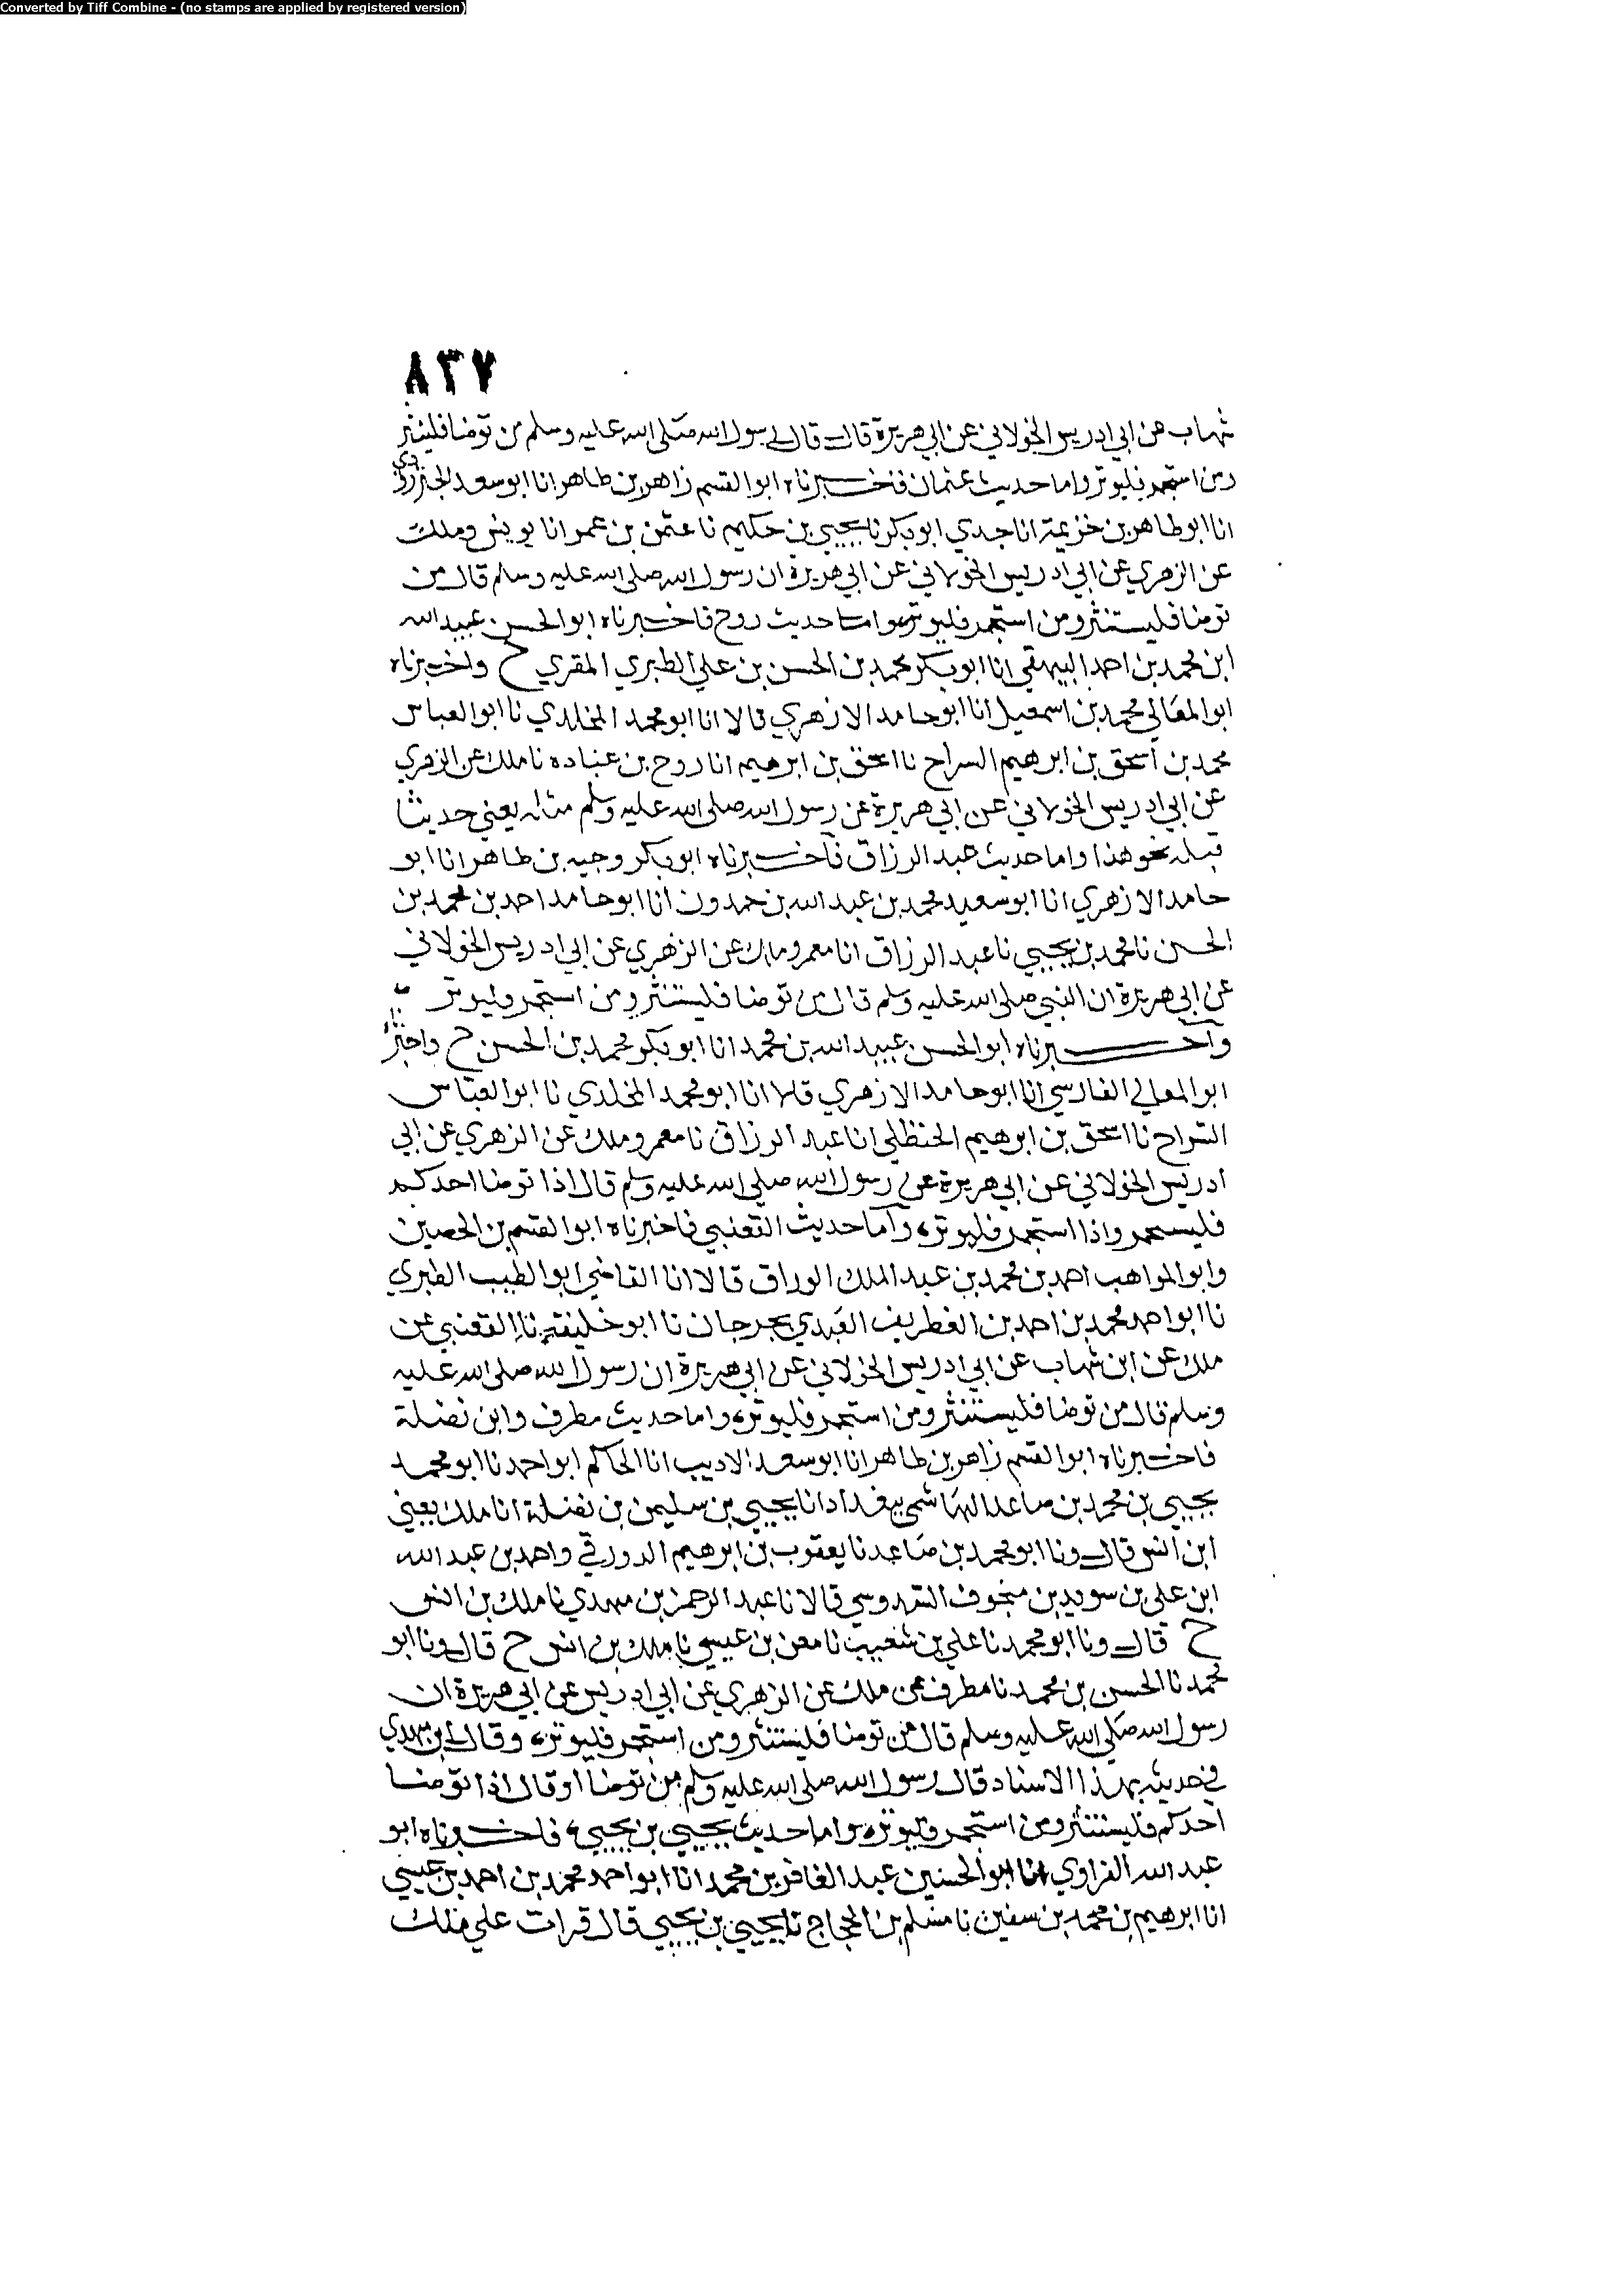 Converted by Tiff Combine - (no stamps are applied by registered version)
٨٣٧
شهاب عن ابي ادريس الخولاني عن ابي هريرة قال قال رسول الله صلى الله عليه وسلم من توضا فلينثر
ومن استجمر فليوتر واما حديث عثمان فاخبرناه ابو القسم زاهر بن طاهر انا ابو سعد الجنزرودي
انا ابو طاهر بن خزيمة انا جدي ابو بكر نا يحيي بن حكيم نا عثمن بن عمر انا يونس وملك
عن الزهري عن ابي ادريس الخولاني عن ابي هريرة ان رسول الله صلى الله عليه وسلم قال من
توضا فليستنثر ومن استجمر فليوتر واما حديث روح فاخبرناه ابو الحسن عبيد الله
ابن محمد بن احمد البيهقي انا ابو بكر محمد بن الحسن بن علي الطبري المقري ح واخبرناه
ابو المعالي محمد بن اسمعيل انا ابو حامد الازهري قالا انا ابو محمد المخلدي نا ابو العباس
محمد بن اسحق بن ابرهيم السراح نا اسحق بن ابرهيم انا روح بن عباده نا ملك عن الزهري
عن ابي ادريس الخولاني عن ابي هريرة عن رسول الله صلى الله عليه وسلم مثله يعني حديثا
قبله نحو هذا واما حديث عبد الرزاق فاخبرناه ابو بكر وجيه بن طاهر انا ابو
حامد الازهري انا ابو سعيد محمد بن عبد الله بن حمدون انا ابو حامد احمد بن محمد بن
الحسن نا محمد بن يحيي نا عبد الرزاق انا معمر ومالك عن الزهري عن ابي ادريس الخولاني
عن ابي هريرة ان النبي صلى الله عليه وسلم قال من توضا فليستنثر ومن استجمر فليوتر
واخبرناه ابو الحسن عبيد الله بن محمد انا ابو بكر محمد بن الحسن ح واخبرنا
ابو المعالي الفارسي انا ابو حامد الازهري قالا انا ابو محمد المخلدي نا ابو العباس
السراح نا اسحق بن ابرهيم الحنظلي انا عبد الرزاق نا معمر وملك عن الزهري عن ابي
ادريس الخولاني عن ابي هريرة عن رسول الله صلى الله عليه وسلم قال اذا توضا احدكم
واذا استجمر فليوتر واما حديث القعنبي فاخبرناه ابو القسم بن الحصين
وابو المواهب احمد بن محمد بن عبد الملك الوراق قالا انا القاضي ابو الطيب الطبري
نا ابو احمد محمد بن احمد بن الغطريف العبدي بجرجان نا ابو خليفة نا القعنبي عن
ملك عن ابن شهاب عن ابي ادريس الخولاني عن ابي هريرة ان رسول الله صلى الله عليه
وسلم قال من توضا فليستنثر ومن استجمر فليوتر واما حديث مطرف وابن نضلة
فاخبرناه ابو القسم زاهر بن طاهر انا ابو سعد الاديب انا الحاكم ابو احمد نا ابو محمد
يحيي بن محمد بن صاعد الهاشمي ببغداد انا يحيي بن سليمن بن نضلة انا ملك يعني
ابن انس قال ونا ابو محمد بن صاعد نا يعقوب بن ابرهيم الدورقي واحمد بن عبد الله
ابن علي بن سويد بن منجوف السدوسي قالا نا عبد الرحمن بن مهدي نا ملك بن انس
ح قال ونا ابو محمد نا علي بن شعيب نا معن بن عيسي نا ملك بن انس ح قال ونا ابو
محمد نا الحسن بن محمد نا مطرف عن ملك عن الزهري عن ابي ادريس عن ابي هريرة ان
رسول الله صلى الله عليه وسلم قال من توضا فليستنثر ومن استجمر فليوتر وقال ابن مهدي
في حديثه بهذا الاسناد قال رسول الله صلى الله عليه وسلم من توضا او قال اذا توضا
احدكم فليستنثر ومن استجمر فليوتر واما حديث يحيي بن يحيي فاخبرناه ابو
عبد الله الفراوي انا ابو الحسين عبد الغافر بن محمد انا ابو احمد محمد بن احمد بن عيسي
انا ابرهيم بن محمد بن سفين نا مسلم بن الحجاج نا يحيي بن يحيي قال قرات علي ملك